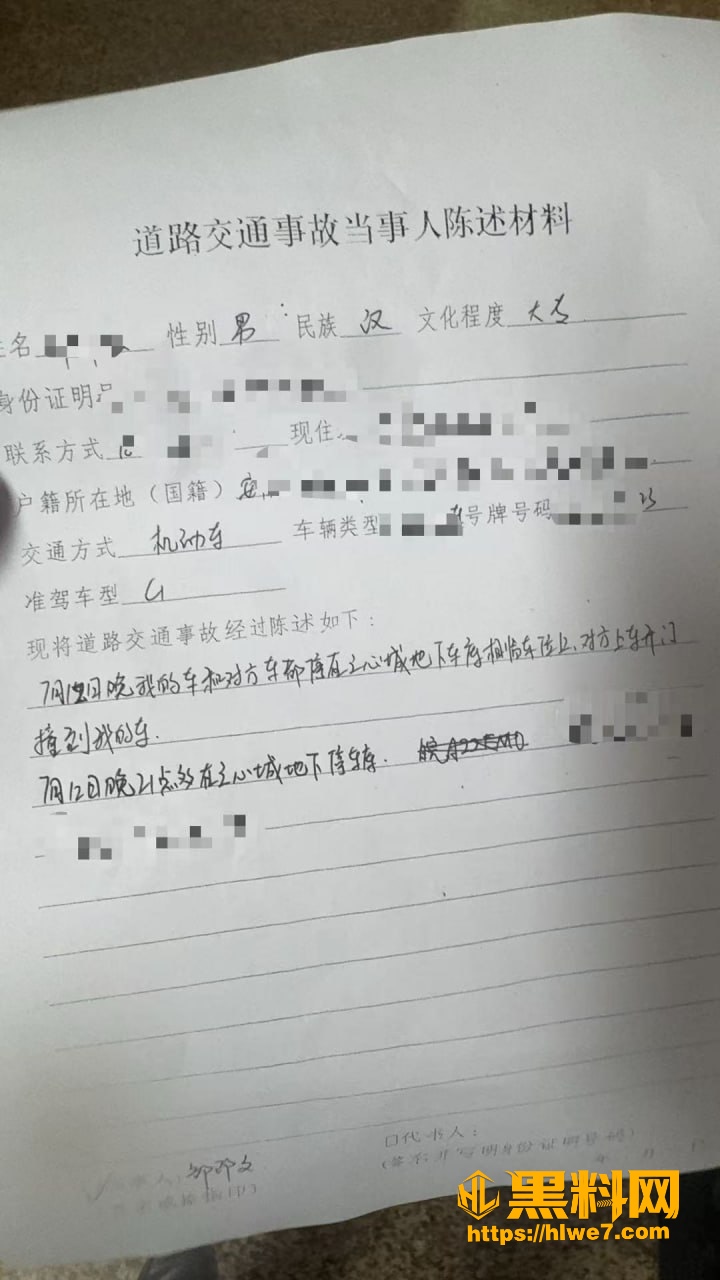 道路交通事故当事人陈述材料
名 性别 男 民族 汉 文化程度 大专
身份证明
联系方式 现住
户籍所在地（国籍）安
交通方式 机动车 车辆类型 号牌号码
准驾车型 C1
现将道路交通事故经过陈述如下：
7月12日晚我的车和对方车都停在之心城地下车库相临车位上，对方上车开门
撞到我的车.
7月12日晚21点多在之心城地下停车库.
口代书人：
(签名并写明身份证明号码)
事人：
年 月 日
黑料网
https://hlwe7.com